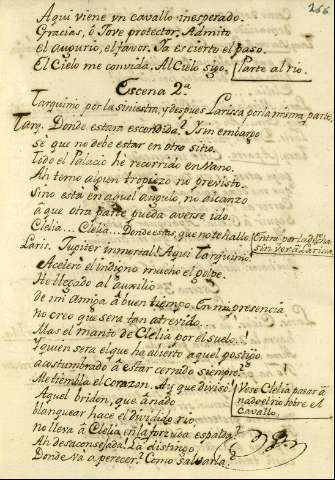 266
Aqui viene vn cavallo inesperado.
Gracias, ò Jove protector. Admito
el augurio, el favor. Ya es cierto el paso.
El Cielo me convida. Al Cielo sigo. Parte al rio.
Escena 2.ª
Tarquinio por la siniestra, y despues Larissa por la misma parte.
Tarq. Donde estara escondida? Y sin embargo
sè que no debe estar en otro sitio.
todo el Palacio he recorrido en vano.
Ah temo algun tropiezo no previsto.
Sino està en aquel angulo, no alcanzo
à que otra parte pueda averse ido.
Clelia... Clelia... Donde estas, que no te hallo? Entra por la dcha
sin ver à Larissa
Laris. Jupiter inmortal! Aqui Tarquinio!
Acelerò el indigno mucho el golpe.
He llegado al auxilio
de mi amiga à buen tiempo. En mi presencia
no creo que sera tan atrevido.
Mas el manto de Clelia por el suelo..!
Y quien sera el que ha abierto aquel postigo
acustumbrado à estar cerrado siempre?
Me tiembla el corazon. Ay que diviso! Vese Clelia pasar à
nado el rio sobre el
Cavallo.
Aquel briden, que à nado
blanquear hace el dividido rio,
no lleva à Clelia en la forzuda espalda?
Ah desaconsejada! La distingo.
Donde và à perecer? Como salvarla?